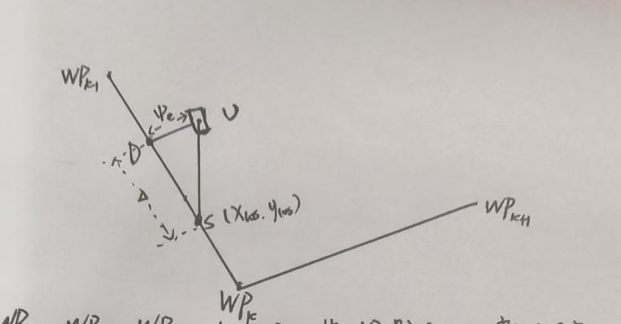 WPk-1
ψe
U
D
Δ
S (xlos, ylos)
WPk+1
WPk